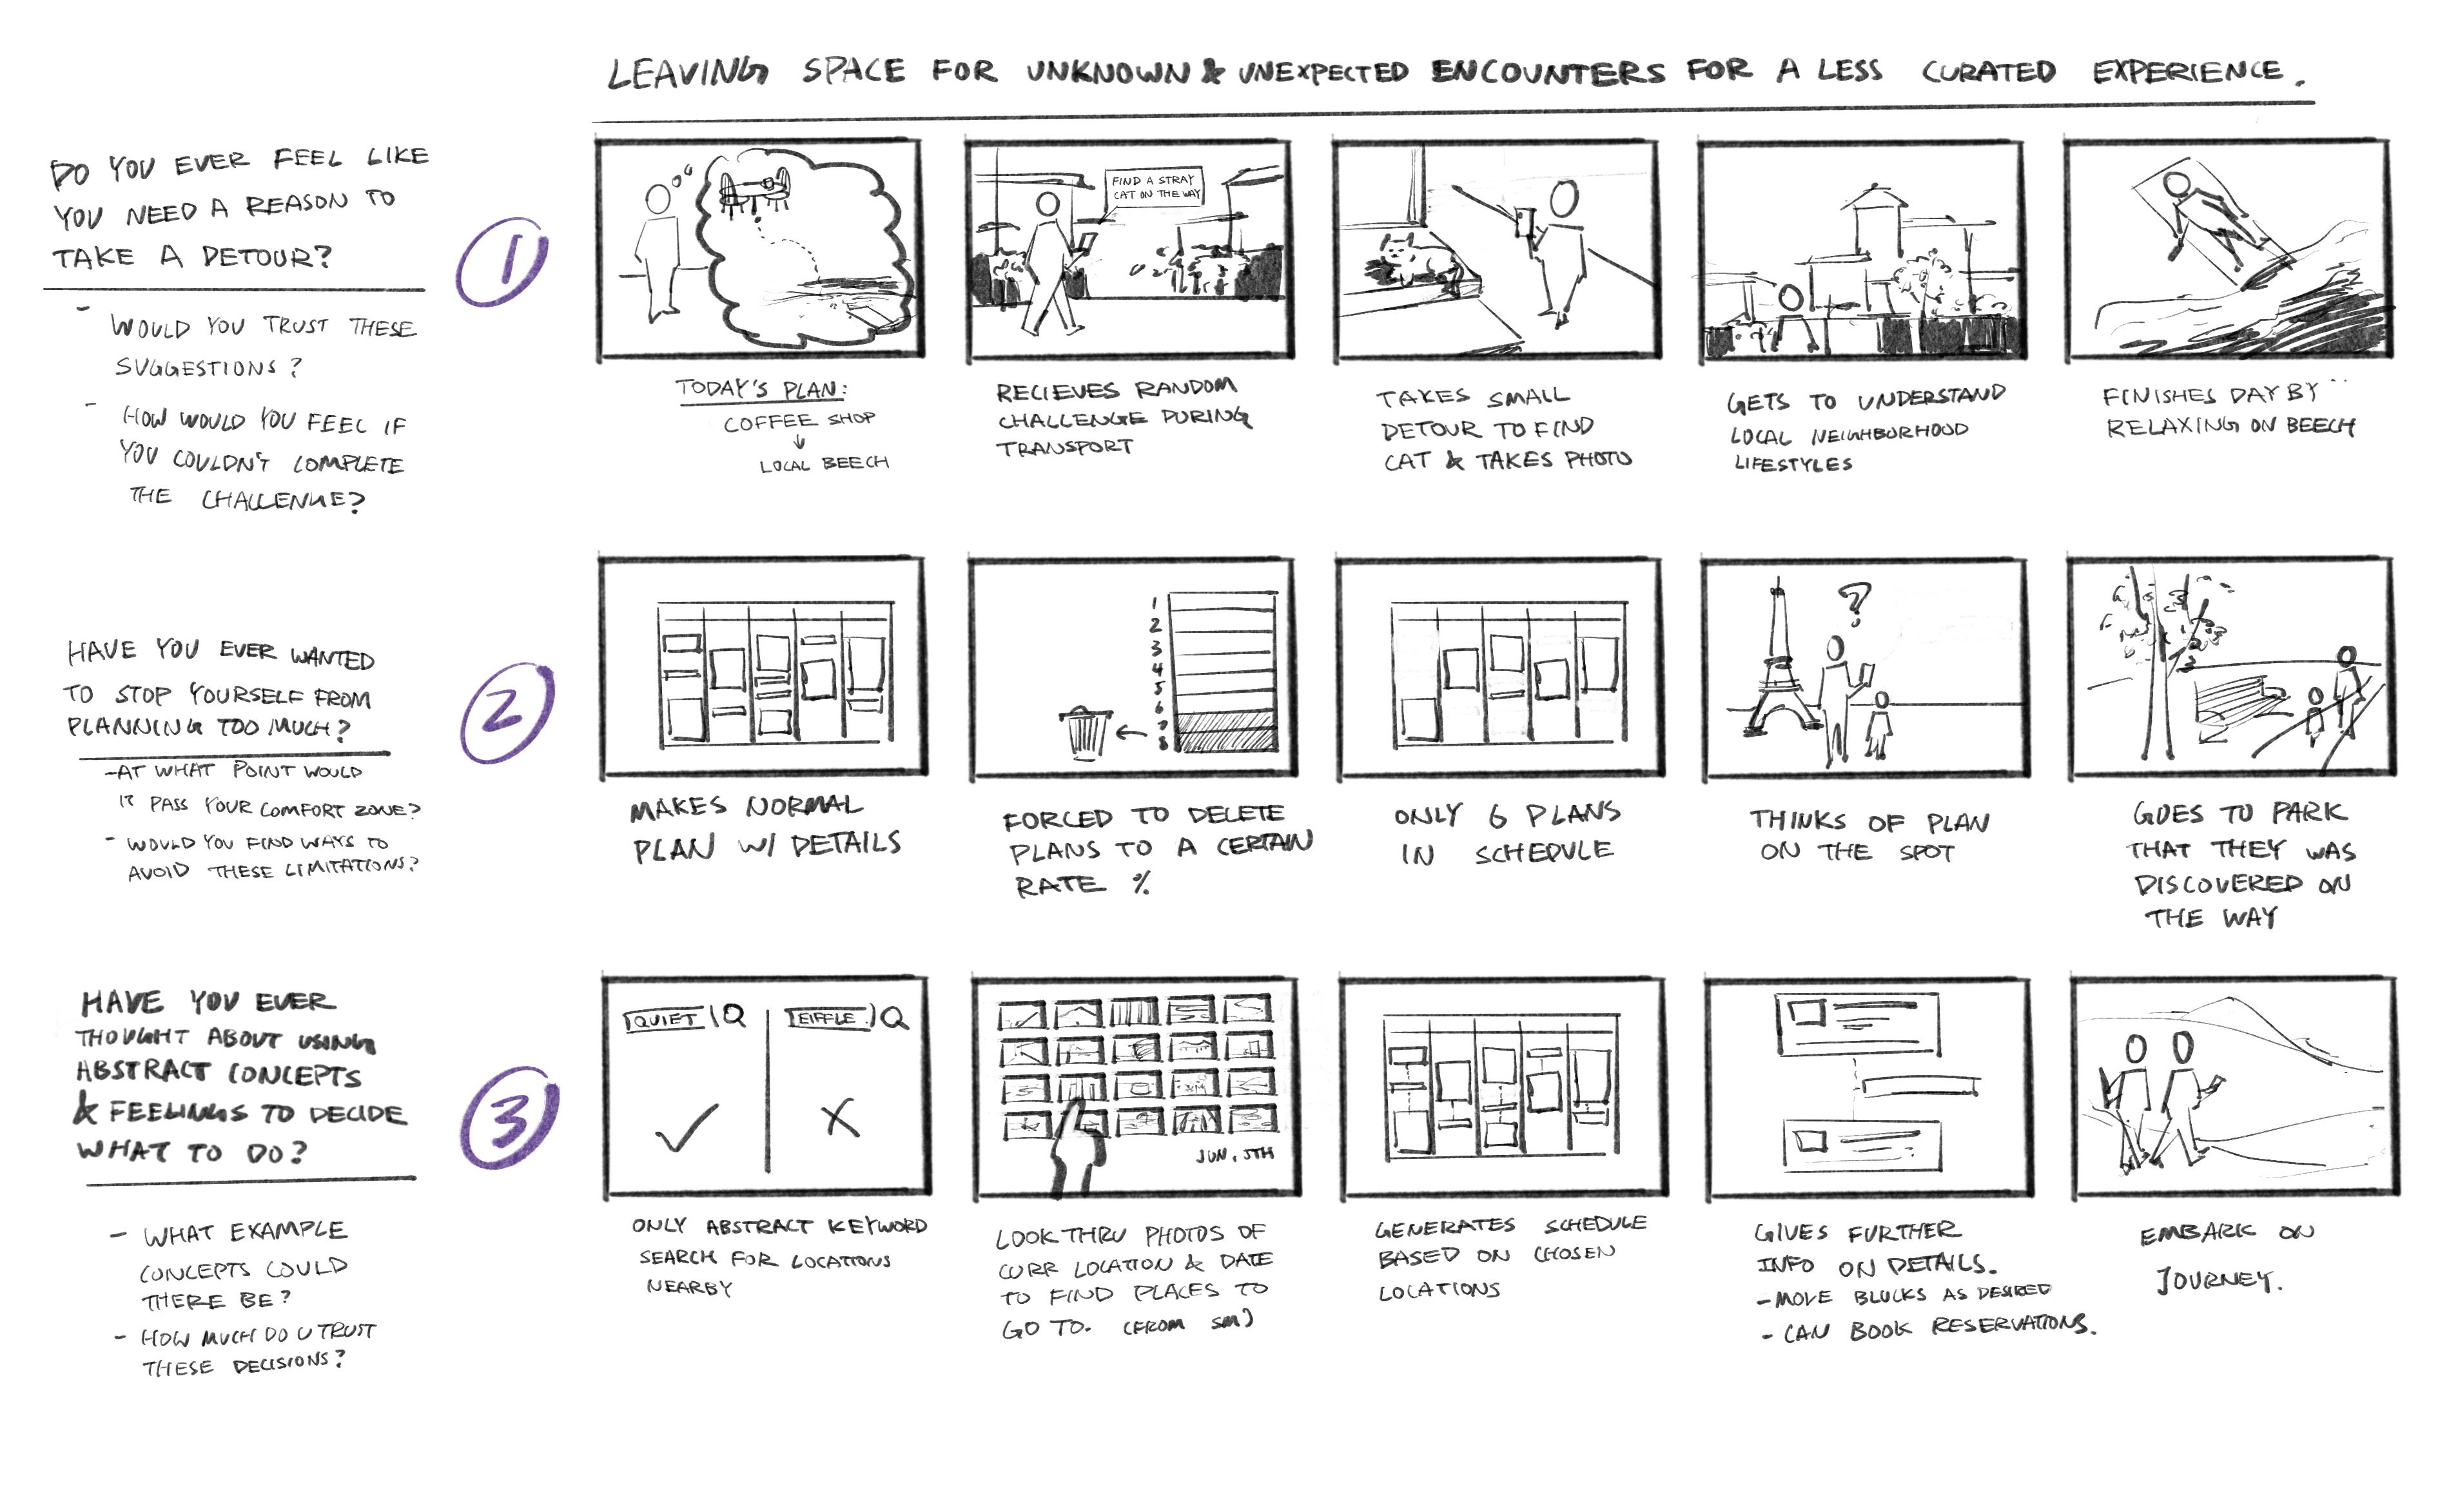 LEAVING SPACE FOR UNKNOWN & UNEXPECTED ENCOUNTERS FOR A LESS CURATED EXPERIENCE.
DO YOU EVER FEEL LIKE
YOU NEED A REASON TO
TAKE A DETOUR?
- WOULD YOU TRUST THESE
SUGGESTIONS?
- HOW WOULD YOU FEEL IF
YOU COULDN'T COMPLETE
THE CHALLENGE?
1
TODAY'S PLAN:
COFFEE SHOP
↓
LOCAL BEECH
FIND A STRAY
CAT ON THE WAY
RECIEVES RANDOM
CHALLENGE DURING
TRANSPORT
TAKES SMALL
DETOUR TO FIND
CAT & TAKES PHOTO
GETS TO UNDERSTAND
LOCAL NEIGHBORHOOD
LIFESTYLES
FINISHES DAY BY
RELAXING ON BEECH
HAVE YOU EVER WANTED
TO STOP YOURSELF FROM
PLANNING TOO MUCH?
- AT WHAT POINT WOULD
IT PASS YOUR COMFORT ZONE?
- WOULD YOU FIND WAYS TO
AVOID THESE LIMITATIONS?
2
MAKES NORMAL
PLAN W/ DETAILS
1
2
3
4
5
6
7
8
←
FORCED TO DELETE
PLANS TO A CERTAIN
RATE %
ONLY 6 PLANS
IN SCHEDULE
?
THINKS OF PLAN
ON THE SPOT
GOES TO PARK
THAT THEY WAS
DISCOVERED ON
THE WAY
HAVE YOU EVER
THOUGHT ABOUT USING
ABSTRACT CONCEPTS
& FEELINGS TO DECIDE
WHAT TO DO?
- WHAT EXAMPLE
CONCEPTS COULD
THERE BE?
- HOW MUCH DO U TRUST
THESE DECISIONS?
3
QUIET
EIFFLE
ONLY ABSTRACT KEYWORD
SEARCH FOR LOCATIONS
NEARBY
JUN, 5TH
LOOK THRU PHOTOS OF
CURR LOCATION & DATE
TO FIND PLACES TO
GO TO. (FROM SM)
GENERATES SCHEDULE
BASED ON CHOSEN
LOCATIONS
GIVES FURTHER
INFO ON DETAILS.
- MOVE BLOCKS AS DESIRED
- CAN BOOK RESERVATIONS.
EMBARK ON
JOURNEY.